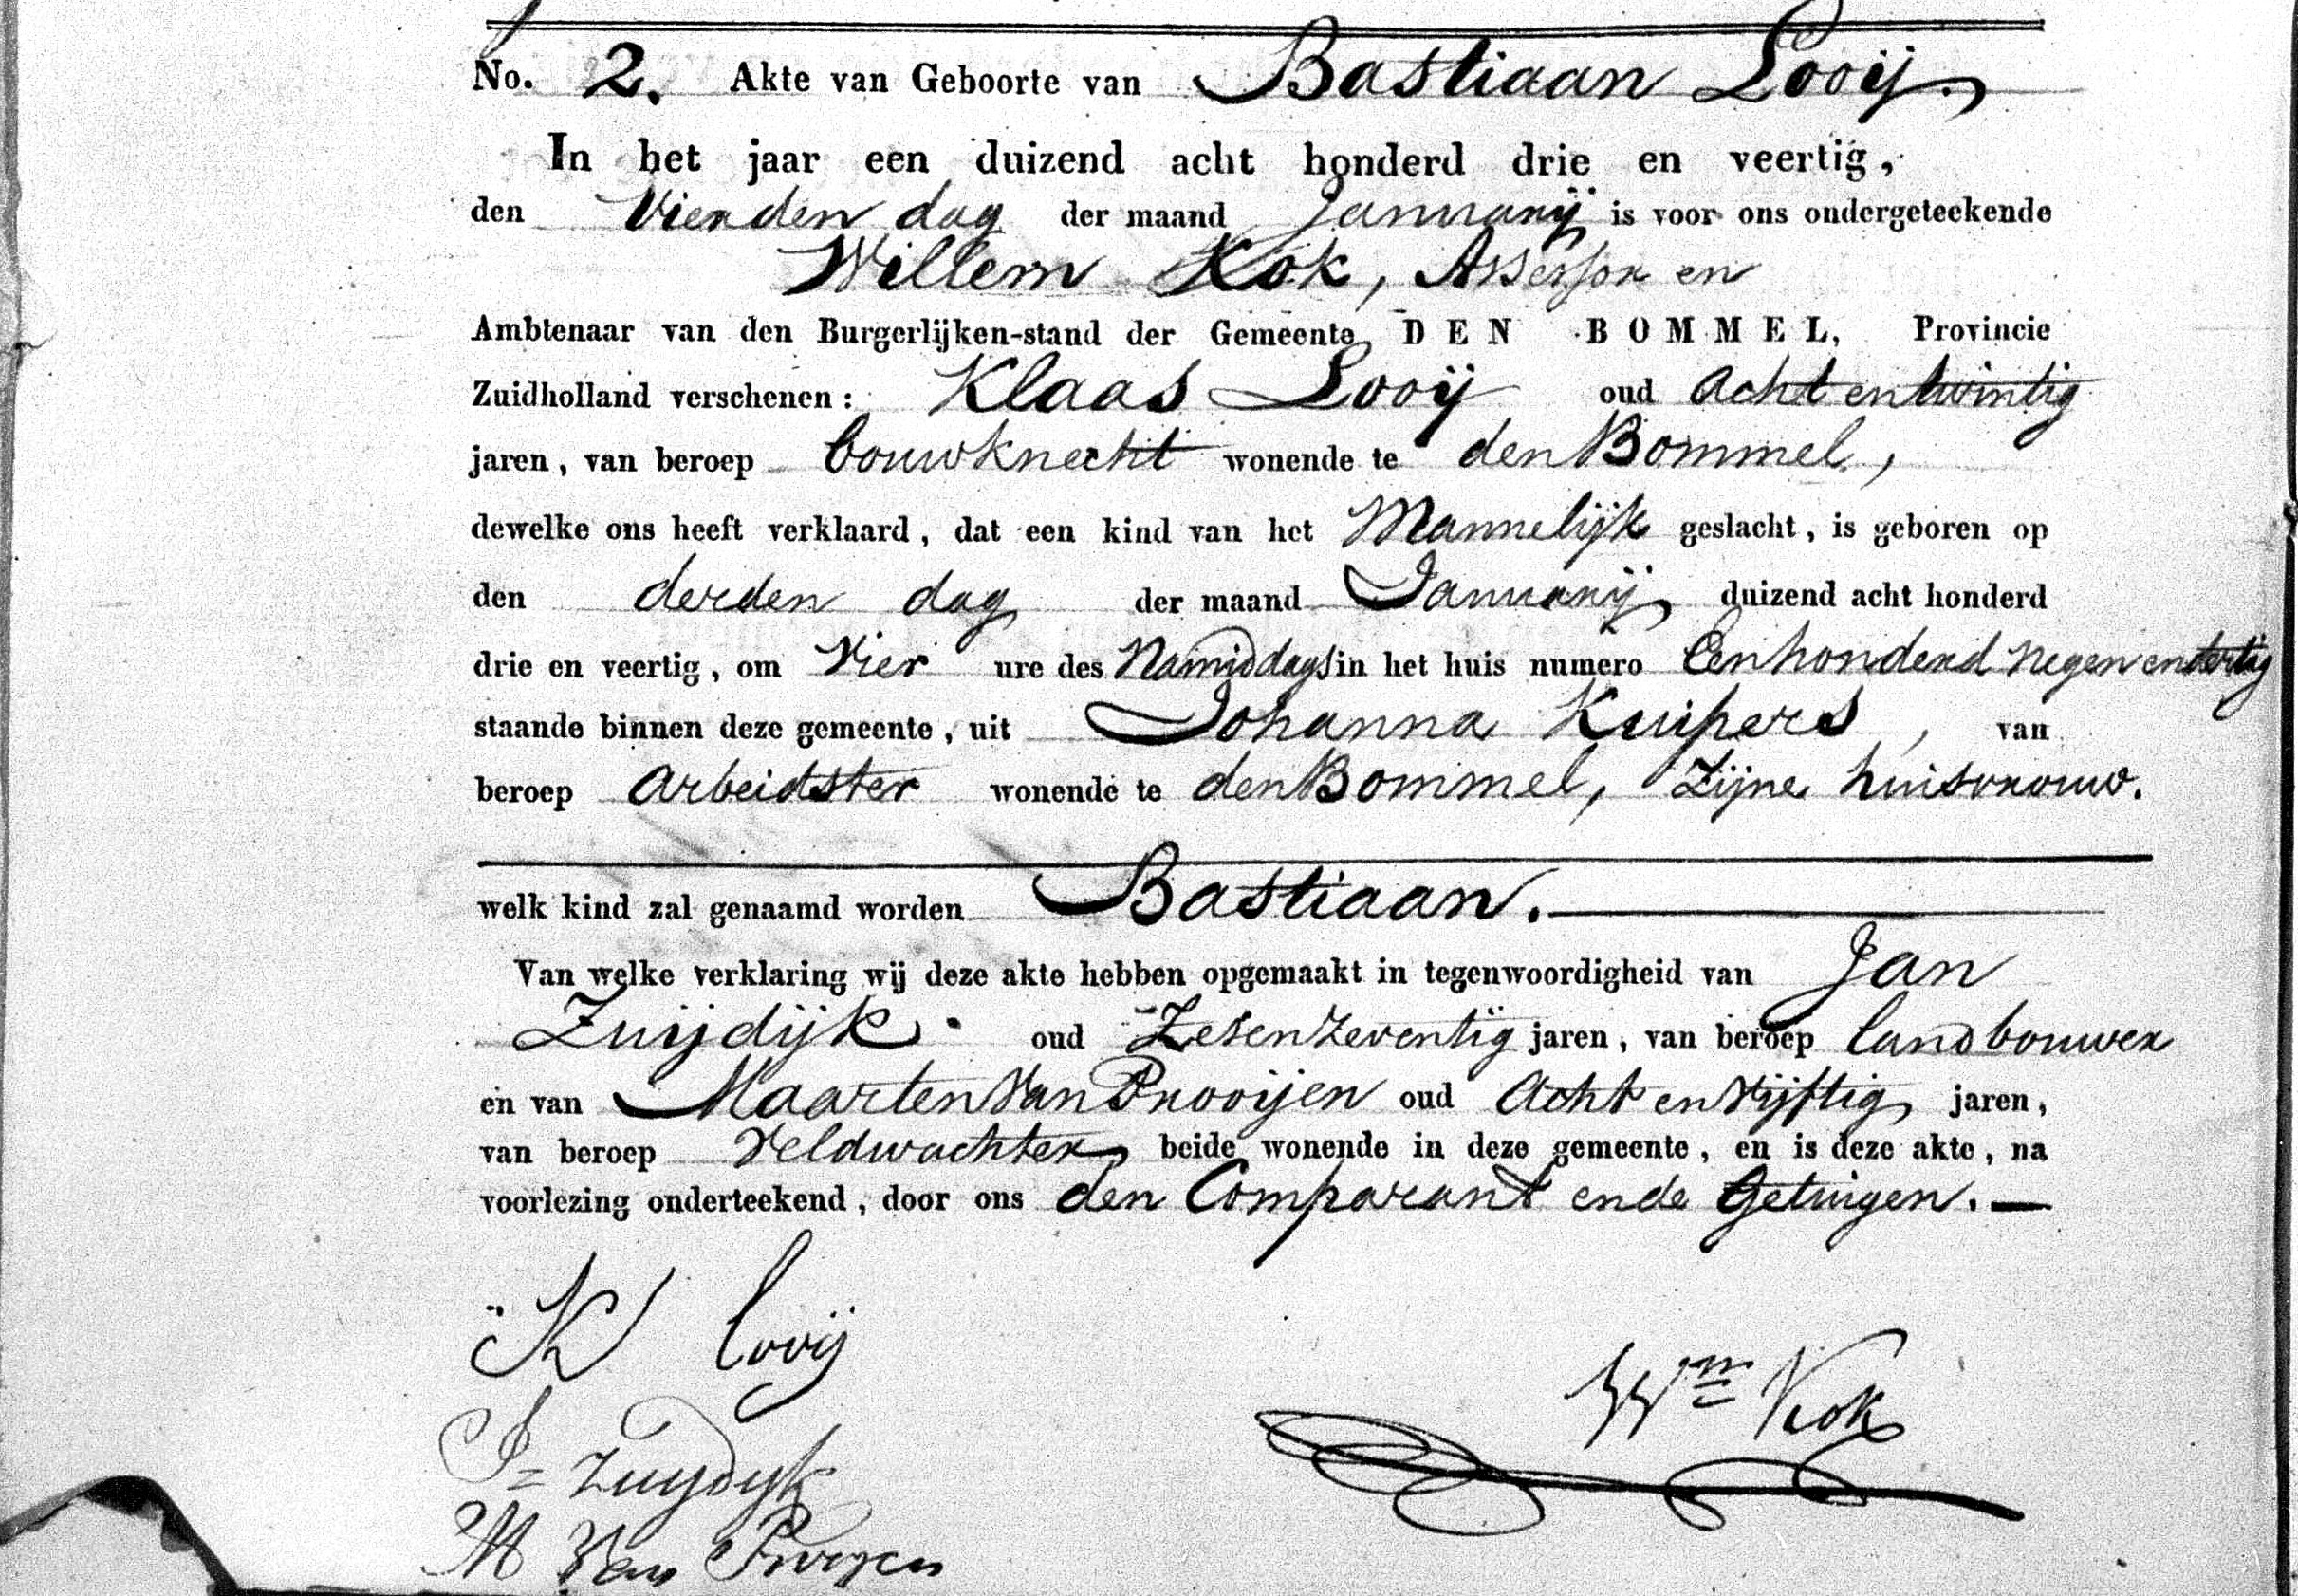 No. 2. Akte van Geboorte van Bastiaan Looij.
In het jaar een duizend acht honderd drie en veertig,
den Vierden dag der maand Januarij is voor ons ondergeteekende
Willem Kok, Assessor en
Ambtenaar van den Burgerlijken-stand der Gemeente DEN BOMMEL, Provincie
Zuidholland verschenen: Klaas Looij oud Acht en twintig
jaren, van beroep bouwknecht wonende te den Bommel,
dewelke ons heeft verklaard, dat een kind van het Mannelijk geslacht, is geboren op
den derden dag der maand Januarij duizend acht honderd
drie en veertig, om Vier ure des Namiddags in het huis numero Eenhonderd negen en dertig
staande binnen deze gemeente, uit Johanna Kuipers, van
beroep Arbeidster wonende te den Bommel, Zijne huisvrouw.
welk kind zal genaamd worden Bastiaan.
Van welke verklaring wij deze akte hebben opgemaakt in tegenwoordigheid van Jan
Zuijdijk oud Zesenzeventig jaren, van beroep landbouwer
en van Maarten Van Prooijen oud Acht en Vijftig jaren,
van beroep Veldwachter, beide wonende in deze gemeente, en is deze akte, na
voorlezing onderteekend, door ons den Comparant en de Getuigen.
K Looij
Wm Kok
J= Zuydyk
M Van Prooyen